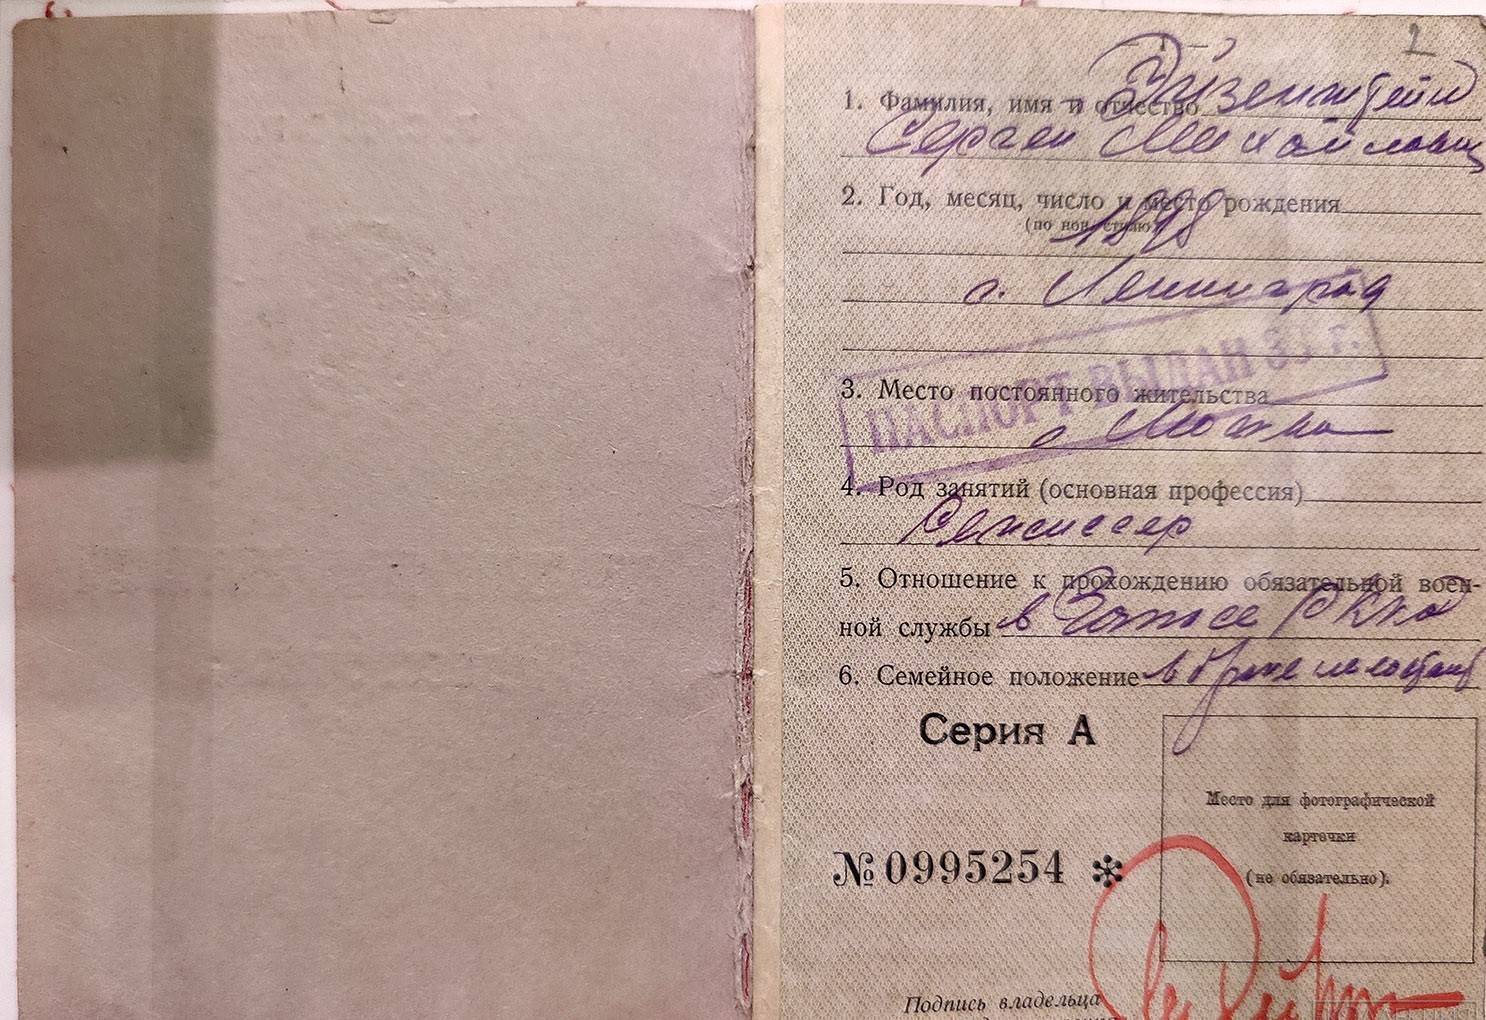 — 1 —
2
1. Фамилия, имя и отчество Эйзенштейн
Сергей Михайлович
2. Год, месяц, число и место рождения
(по нов. стилю)
1898
г. Ленинград
ПАСПОРТ ВЫДАН 33 г.
3. Место постоянного жительства
г. Москва
4. Род занятий (основная профессия)
Режиссер
5. Отношение к прохождению обязательной воен-
ной службы в Запасе РККА
6. Семейное положение в браке не состоит
Серия А
№ 0995254 *
Место для фотографической
карточки
(не обязательно).
Подпись владельца